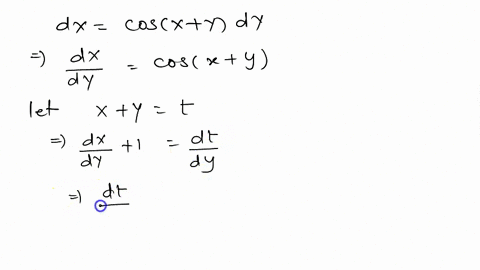 dx = cos(x+y) dy
=) dx/dy = cos(x+y)
let x+y = t
=) dx/dy + 1 = dt/dy
=) dt